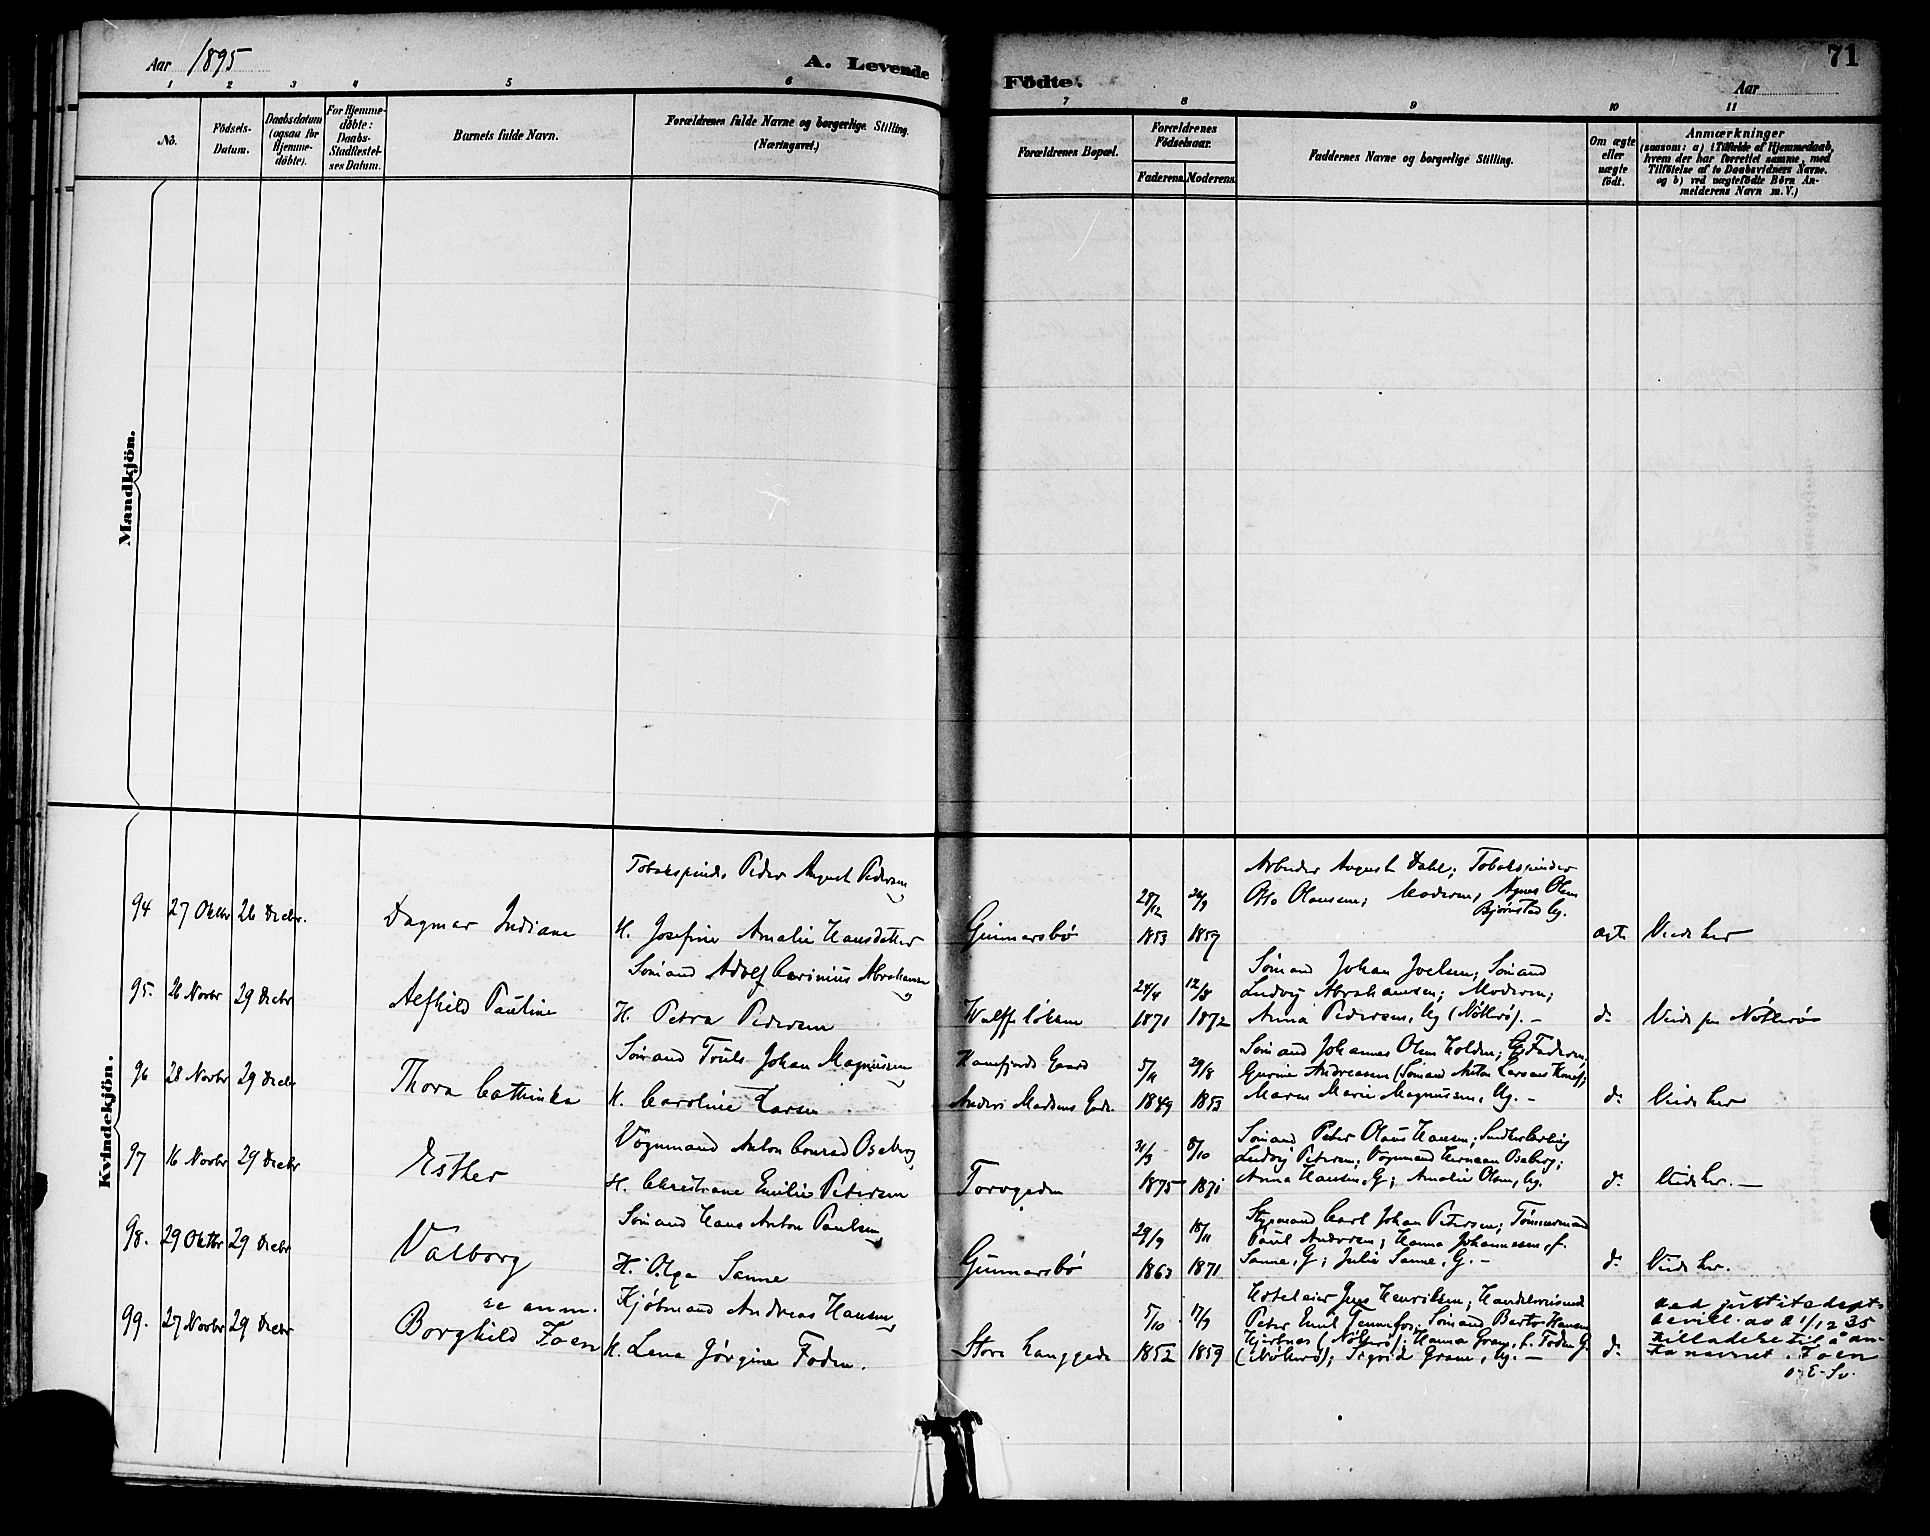 Aar 1895
A. Levende
Födte.
Aar
71
1 2 3 4 5 6 7 8 9 10 11
No.
Födsels-
Datum.
Daabsdatum
(ogsaa for
Hjemme-
döbte).
For Hjemme-
döbte:
Daabs-
Stadfæstel-
ses Datum.
Barnets fulde Navn.
Forældrenes fulde Navne og borgerlige Stilling.
(Næringsvei.)
Forældrenes Bopæl.
Forældrenes
Födselsaar.
Faderens.
Moderens.
Faddernes Navne og borgerlige Stilling.
Om ægte
eller
uægte
födt.
Anmærkninger
(saasom: a) i Tilfælde af Hjemmedaab,
hvem der har forrettet samme, med
Tilföielse af to Daabsvidners Navne.
og b) ved uægtefödte Börn An-
melderens Navn m.V.)
Mandkjön.
Kvindekjön.
94 27 Oktbr 26 Decbr.
Dagmar Indiane
Tobakspind. Peder August Pedersen
H. Josefine Amalie Hansdatter
Gunnarsbö
28/12 1853
1857
Arbeider August Dahl; Tobakspinder
Otto Olausen; Moderen; Agnes Olsen
Bjørnstad Ug.
ægte
Viede her
95. 26 Novbr 29 Decbr
Alfhild Pauline
Sömand Adolf Carinius Abrahamsen
H. Petra Pedersen
28/4 1871
12/8 1872
Sömand Johan Joelsen; Sömand
Ludvig Abrahamsen; Moderen;
Anna Pedersen, Ug (Nötterö). –
d.
Viede paa Nötterö
96 28 Novbr 29 Decbr
Thora Cathinka
Sömand Truls Johan Magnussen
H. Caroline Larsen
Anders Madsens Gade.
1849
29/8 1853
Sömand Johannes Olsen Holden; Faderen;
Gurine Andreasen (Sömand Anton Larsens Kone);
Maren Marie Magnussen, Ug. –
d.
Viede her
97 16 Novbr 29 Decbr
Esther
Vognmand Anton Conrad Oseberg
H. Christiane Emilie Petersen
Torvgaden
31/3 1875
8/10 1871
Sömand Peter Olaus Hansen;
Ludvig Petersen; Vognmand Herman Oseberg;
Anna Hansen, G; Amalie Olsen, Ug.
d.
Viede her. –
98. 29 Oktbr 29 Decbr
Valborg
Sömand Hans Anton Paulsen
H. Olga Sanne
Gunnarsbö
29/9 1863
18/11 1871
Styrmand Carl Johan Petersen; Tömmermand
Paul Andersen; Hanna Johannesen, f.
Sanne, G; Julie Sanne, G. –
d.
Viede her.
99. 27 Novbr 29 Decbr
se anm.
Borghild Foen
Kjöbmand Andreas Hansen
H. Lena Jörgine Foden.
Store Langgade
5/10 1852
17/9 1859
Hoteleier Jens Henriksen;
Peter Emil; Sömand Hansen
(Nötterö); Hanna Gram, f. Foden G.
(Nötterö); Sigrid Gram, Ug. –
d.
ved justitsdepts
bevill. av 21/12 35
tilladelse til å an-
ta navnet Foen